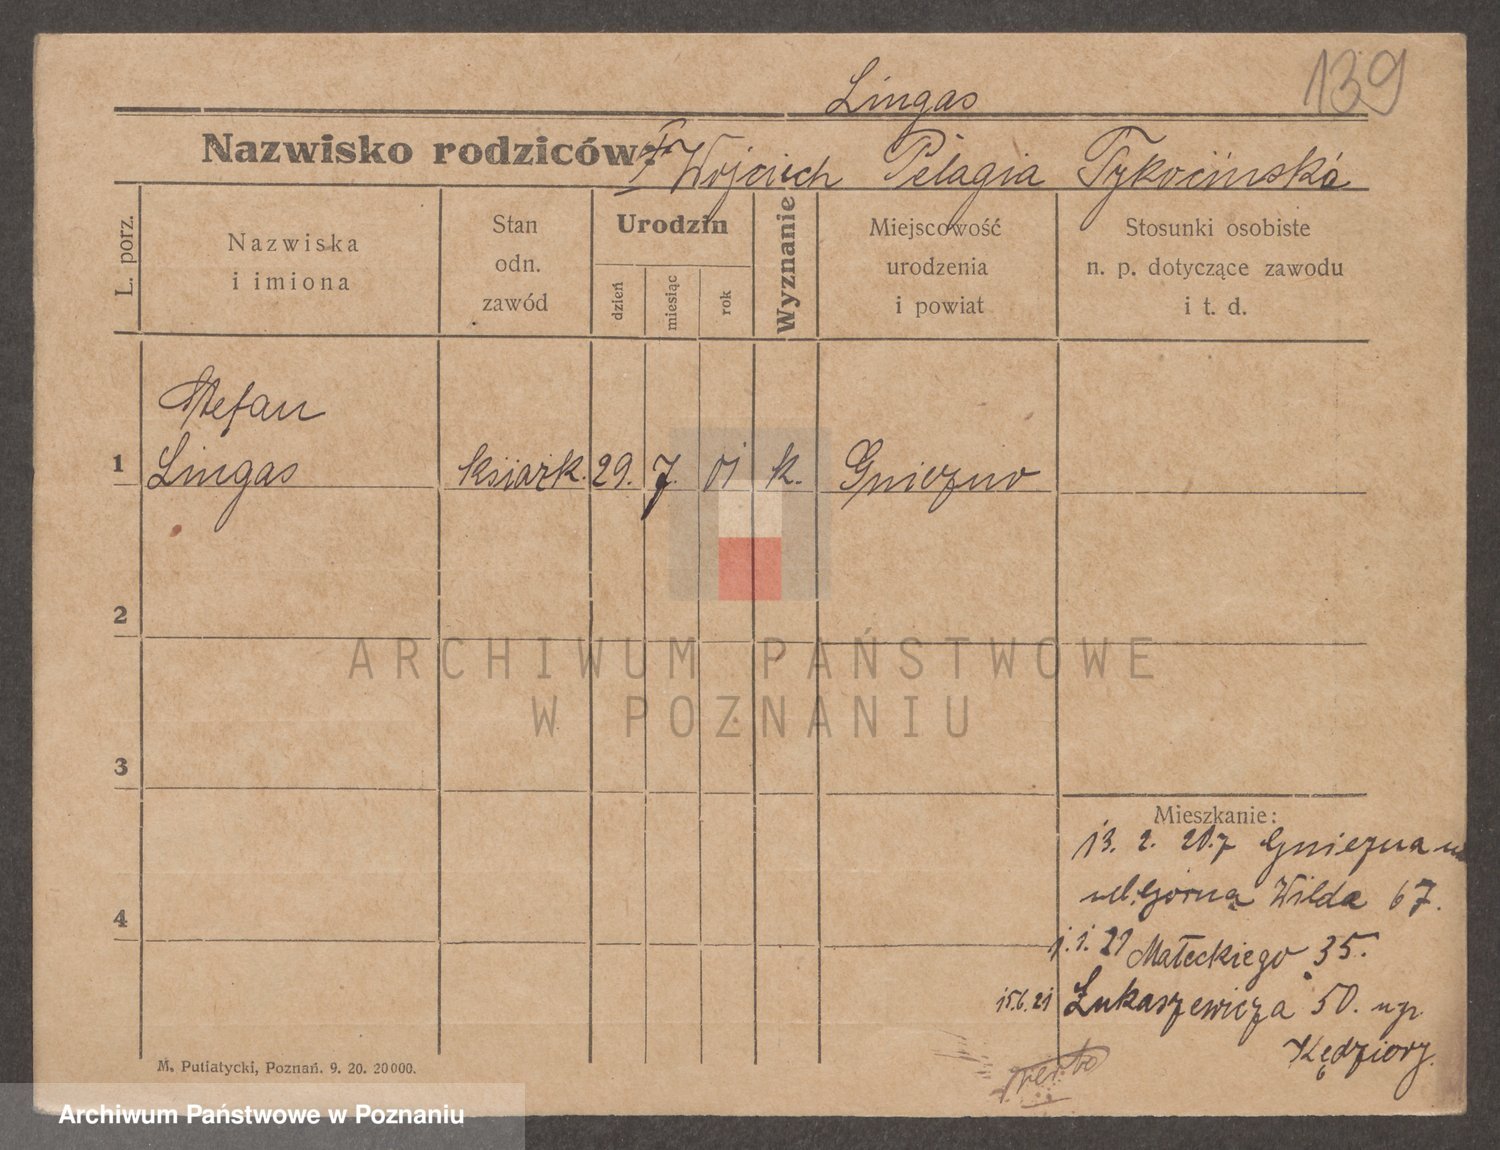 139
Lingas
Nazwisko rodziców: Wojciech Pelagia Tykocińska
L. porz.
Nazwiska i imiona
Stan odn. zawód
Urodzin
dzień
miesiąc
rok
Wyznanie
Miejscowość urodzenia i powiat
Stosunki osobiste n. p. dotyczące zawodu i t. d.
Stefan
1 Lingas książk. 29. 7. 01 k. Gniezno
2
3
4
Mieszkanie:
13. 2. 20. z Gniezna
ul. Górna Wilda 67.
1. 1. 21 Małeckiego 35.
15.6.21 Łukaszewicza 50.
Kędziory.
M. Putiatycki, Poznań. 9. 20. 20000.
ARCHIWUM PAŃSTWOWE
W POZNANIU
Archiwum Państwowe w Poznaniu